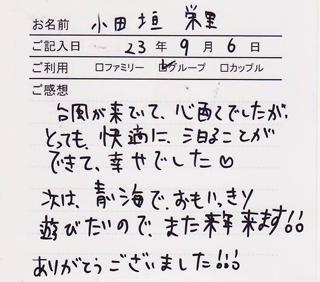 お名前 小田垣 栄里
ご記入日 23年9月6日
ご利用 □ファミリー ☑グループ □カップル
ご感想
台風が来ていて、心配でしたが、
とっても、快適に、泊ることが
できて、幸せでした♡
次は、青い海で、おもいっきり
遊びたいので、また来年来ます!!
ありがとうございました!!!